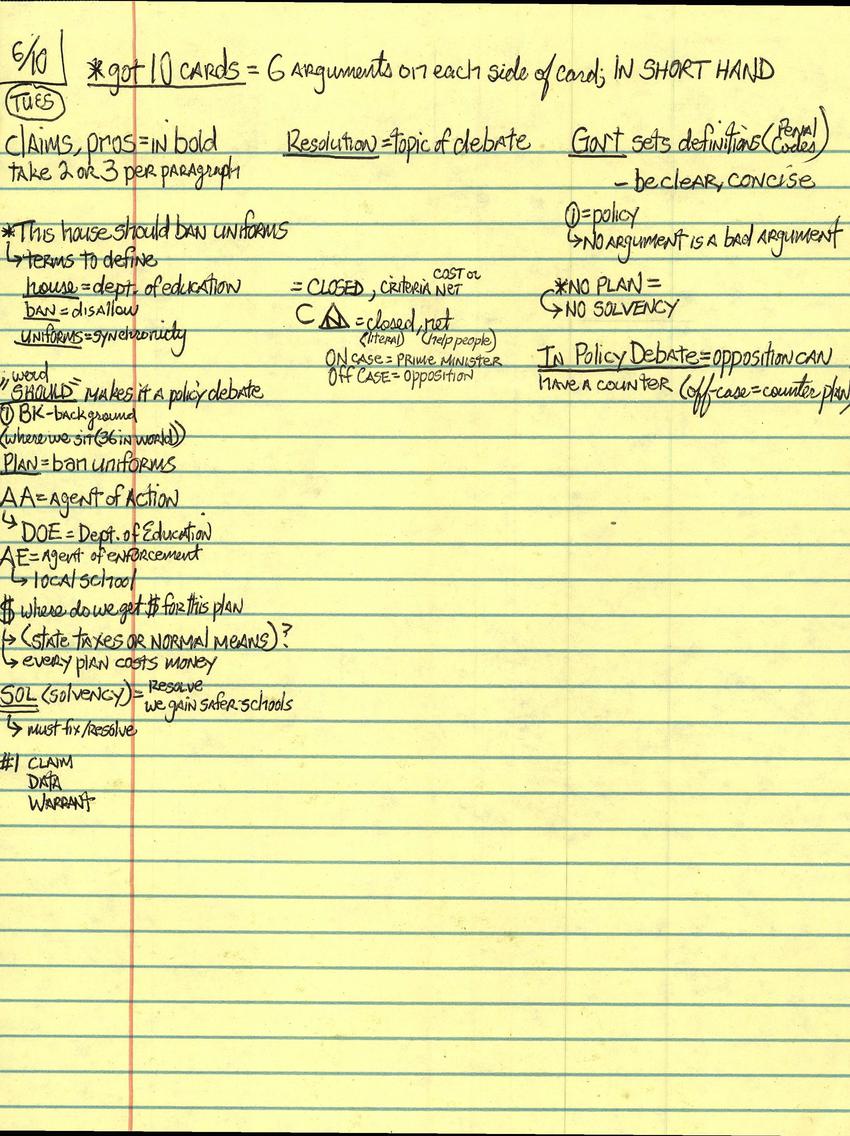 6/10
TUES
*got 10 CARDS = 6 Arguments on each side of card; IN SHORT HAND
claims, pros = in bold
take 2 OR 3 per paragraph
Resolution = topic of debate
Gov't sets definitions (Penal Codes)
- be clear, concise
① = policy
↳ NO ARGUMENT IS A BAD ARGUMENT
*NO PLAN =
↳ NO SOLVENCY
In Policy Debate = opposition CAN
have a counter (off-case = counter plan)
*This house should BAN UNIFORMS
↳ terms to define
house = dept. of education
BAN = disallow
UNIFORMS = synchronicity
= CLOSED, CRITERIA NET COST OR
C = closed, net
(literal) (help people)
ON CASE = PRIME MINISTER
Off CASE = Opposition
word
"SHOULD" makes it a policy debate
① BK-background
(where we sit (36 in world))
PLAN = ban uniforms
AA = Agent of Action
↳ DOE = Dept. of Education
AE = Agent of enforcement
↳ local school
$ where do we get $ for this plan
↳ (STATE TAXES OR NORMAL MEANS)?
↳ every plan costs money
SOL (solvency) = Resolve
we gain safer schools
↳ must fix/resolve
#1 CLAIM
DATA
WARRANT